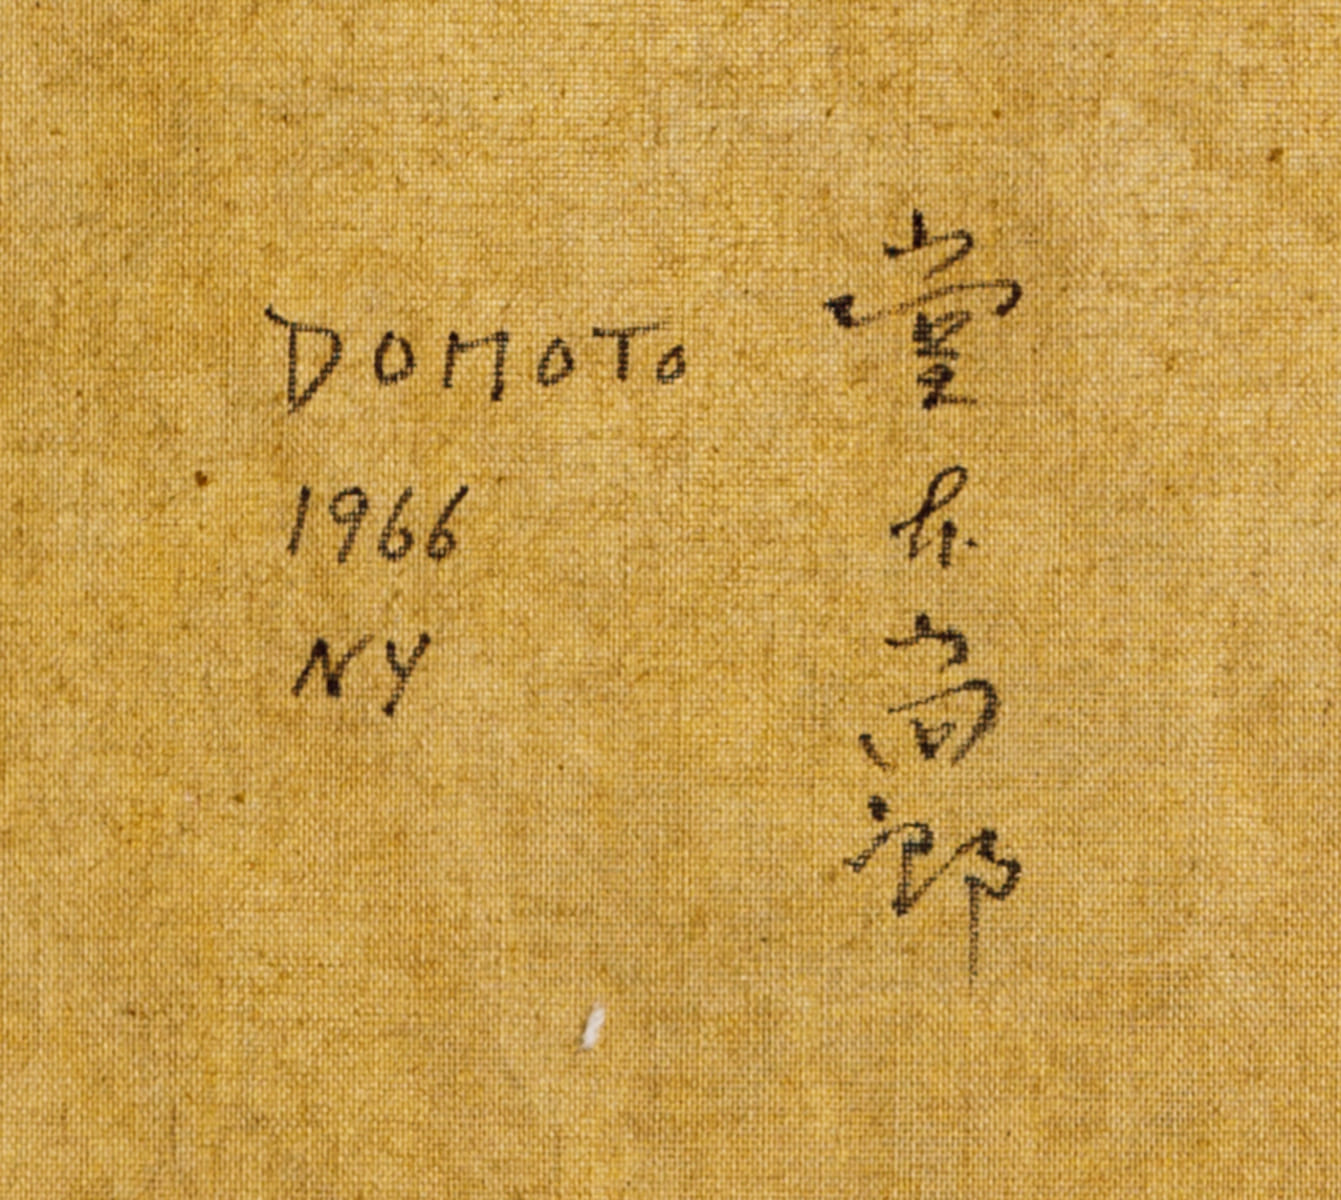 DOMOTO
1966
NY
堂本尚郎